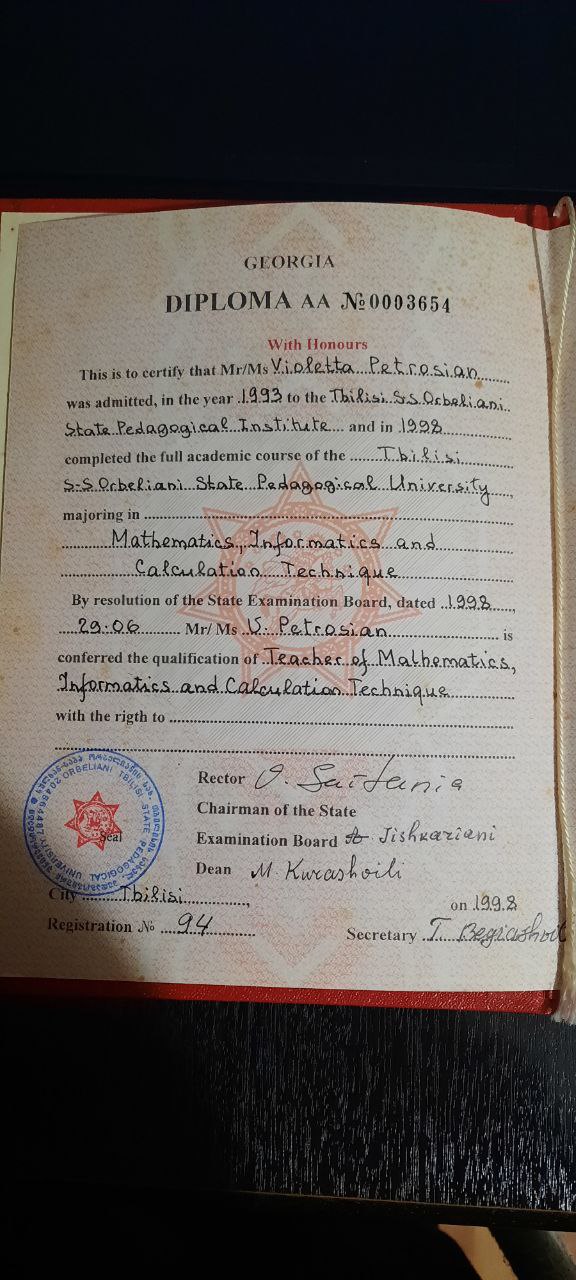 GEORGIA
DIPLOMA AA №0003654
With Honours
This is to certify that Mr/Ms Violetta Petrosian
was admitted, in the year 1993 to the Tbilisi S-S Orbeliani
State Pedagogical Institute and in 1998
completed the full academic course of the Tbilisi
S-S Orbeliani State Pedagogical University
majoring in
Mathematics, Informatics and
Calculation Technique
By resolution of the State Examination Board, dated 1998
29.06 Mr/ Ms V. Petrosian is
conferred the qualification of Teacher of Mathematics,
Informatics and Calculation Technique
with the rigth to
Rector
Chairman of the State
Examination Board Jishkariani
Dean M. Kurashvili
ORBELIANI TBILISI STATE PEDAGOGICAL UNIVERSITY
Seal
City Tbilisi
on 1998
Registration № 94
Secretary T. Begiashvil